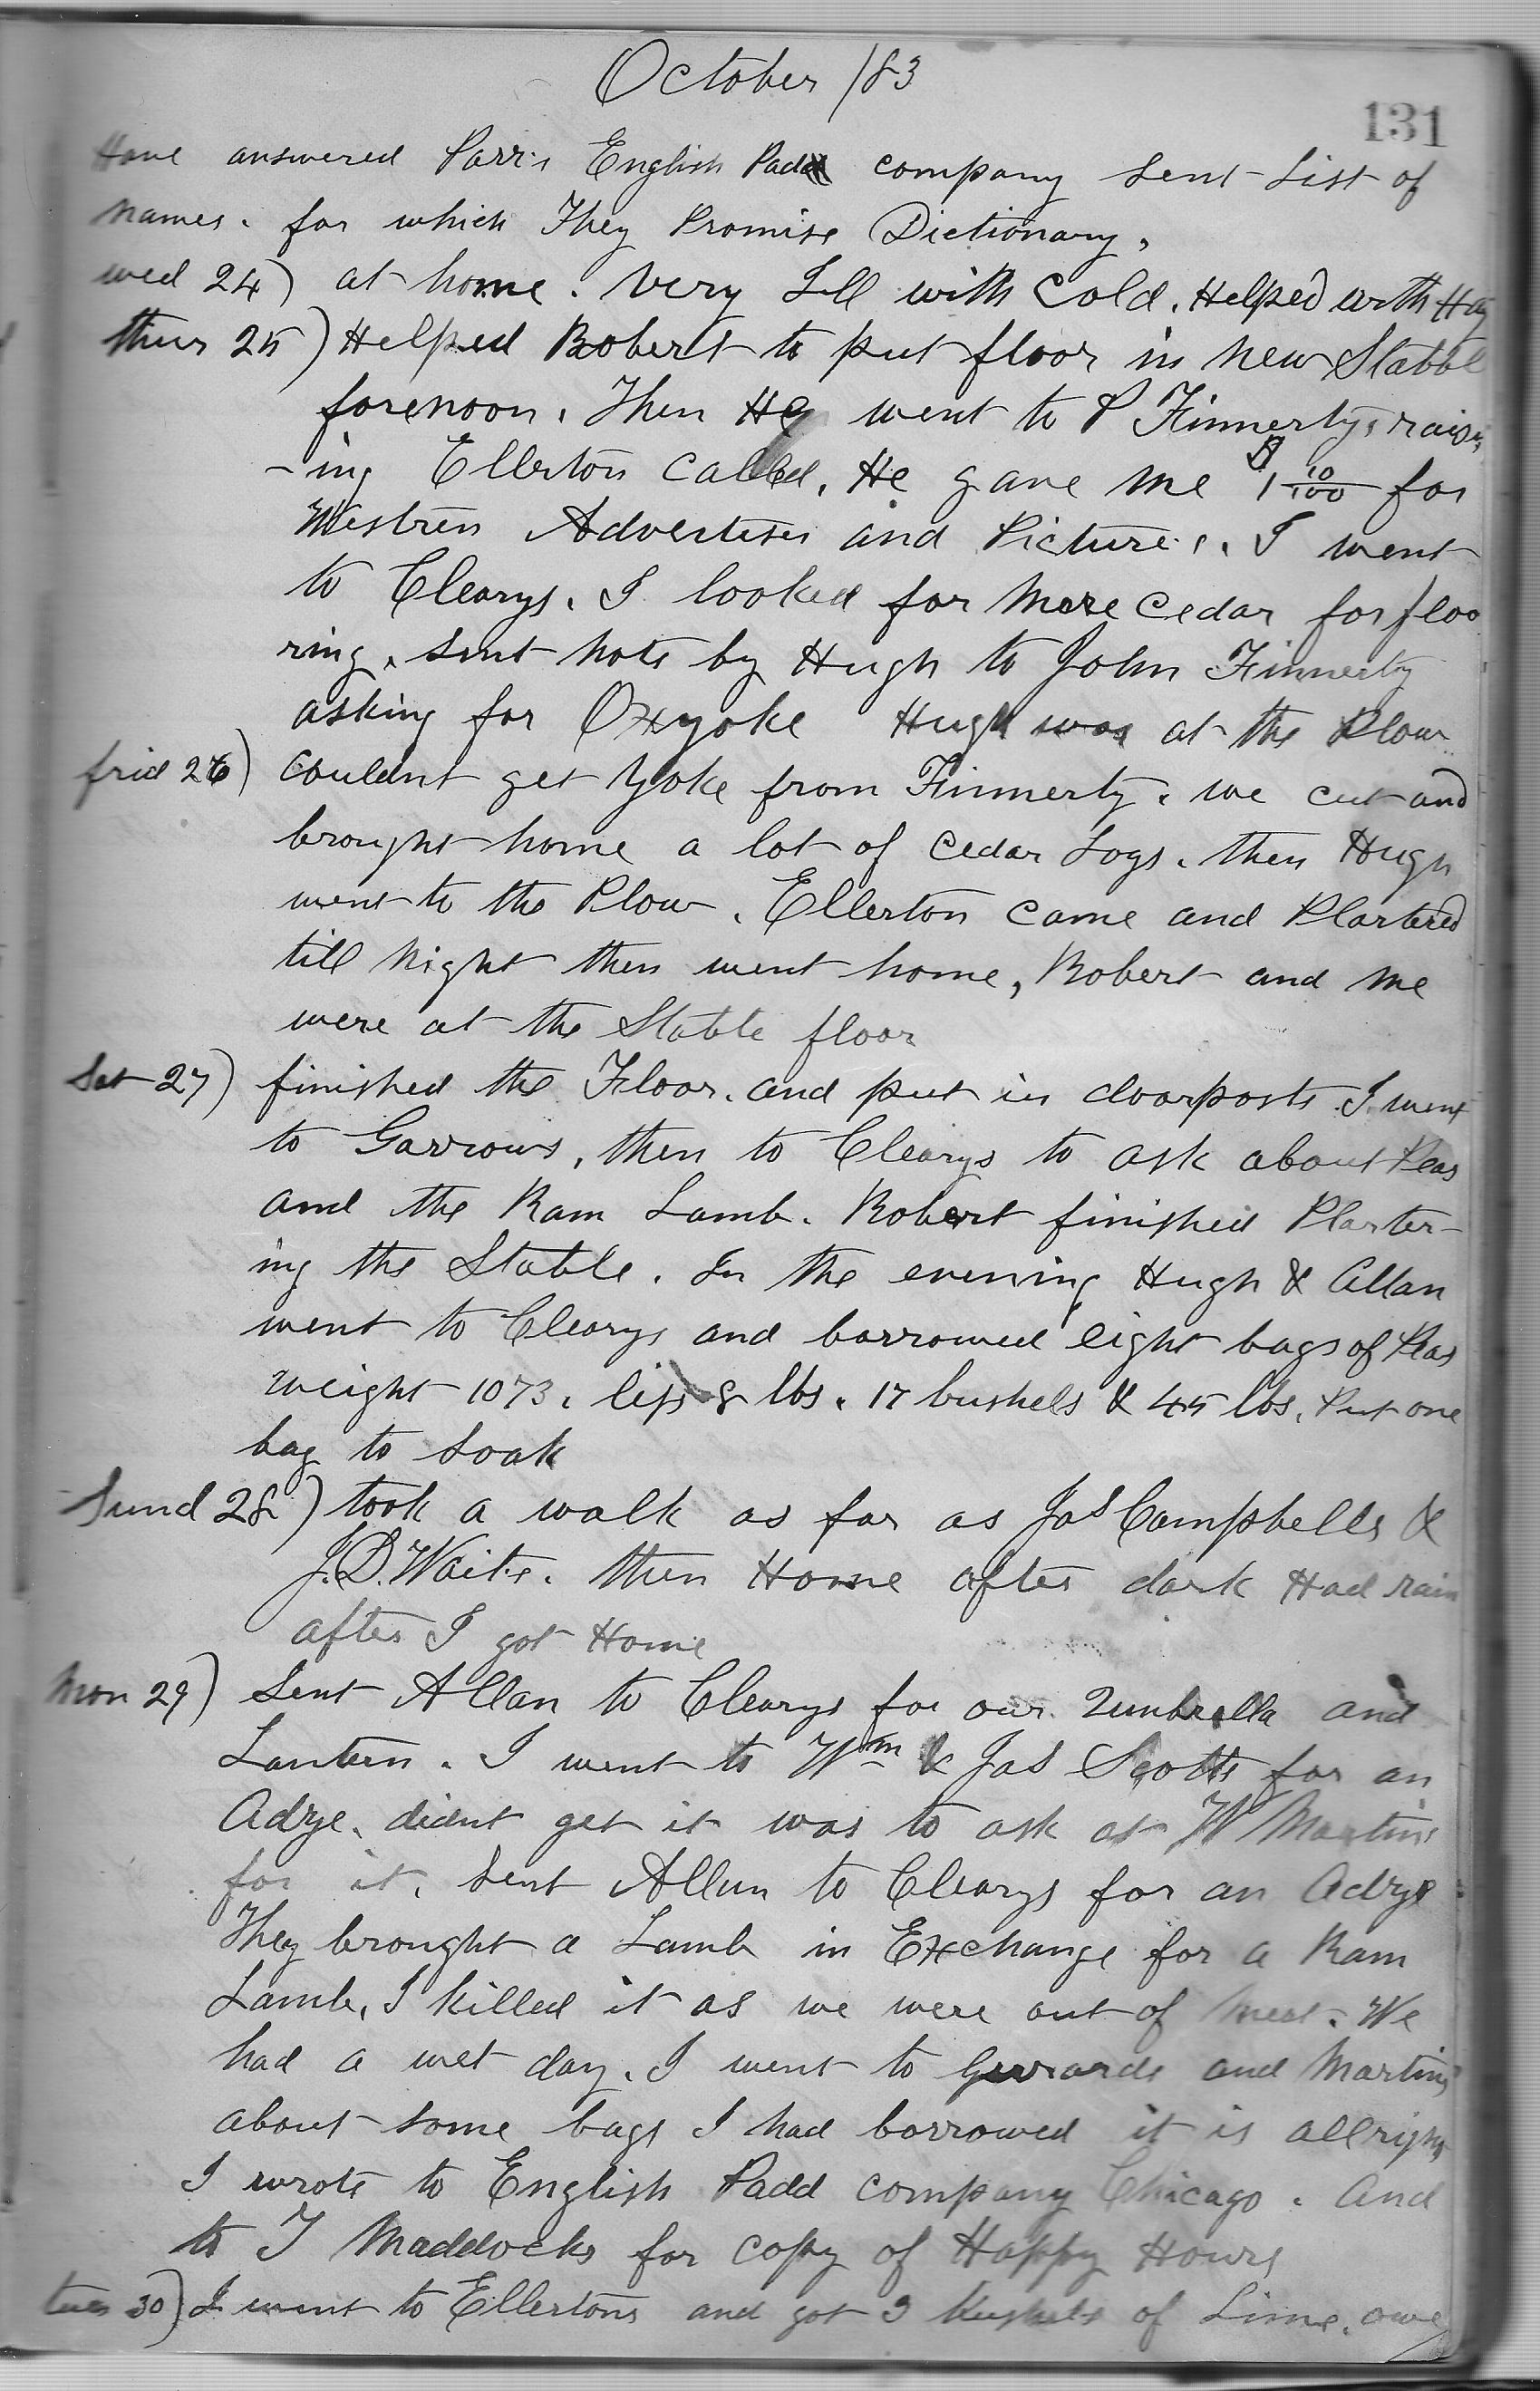 October /83
131
Have answered Parris English Padd company sent List of
names. for which They Promise Dictionary.
wed 24) at home. very Ill with Cold. Helped with Hay
thur 25) Helped Robert to put floor in new Stable
forenoon. Then He went to P Finnertys rais
-ing Ellerton called. He gave me $1 10/100 for
Westren Advertiser and Pictures. I went
to Clearys. I looked for More Cedar for floo
ring. sent note by Hugh to John Finnerty
asking for Oxyoke Hugh was at the Plow
frid 26) Couldnt get Yoke from Finnerty. we cut and
brought home a lot of Cedar Logs. then Hugh
went to the Plow. Ellerton came and Plastered
till Night then went home, Robert and me
were at the Stable floor
Sat 27) finished the Floor. and put in doorposts I went
to Garrows, then to Clearys to ask about Peas
and the Ram Lamb. Robert finished Plaster-
ing the Stable. In the evening Hugh & Allan
went to Clearys and borrowed eight bags of Peas
weight 1073. less 8 lbs. 17 bushels & 45 lbs. Put one
bag to soak
Sund 28) took a walk as far as Jas Campbells &
J.D. Waits. then Home after dark Had rain
after I got Home
Mon 29) Sent Allan to Clearys for our Umbrella and
Lantern. I went to Wm & Jas Scotts for an
Adze. didnt get it was to ask at W Martins
for it. Sent Allan to Clearys for an Adze
They brought a Lamb in Exchange for a Ram
Lamb, I killed it as we were out of Meat. We
had a wet day. I went to and Martins
about some bags I had borrowed it is allright
I wrote to English Padd company Chicago. And
to T Maddocks for copy of Happy Hours
tues 30) I went to Ellertons and got 3 bushels of Lime. owe